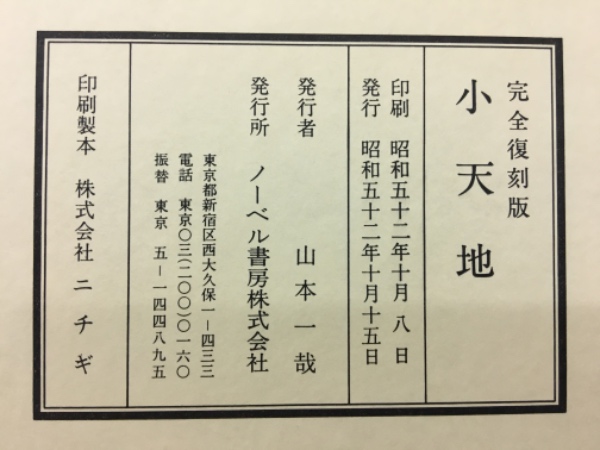 完全復刻版
小天地
印刷 昭和五十二年十月 八 日
発行 昭和五十二年十月十五日
発行者 山本一哉
発行所 ノーベル書房株式会社
東京都新宿区西大久保一ー四三三
電話 東京〇三(二〇〇)〇一六〇
振替 東京 五ー一四四八九五
印刷製本 株式会社ニチギ